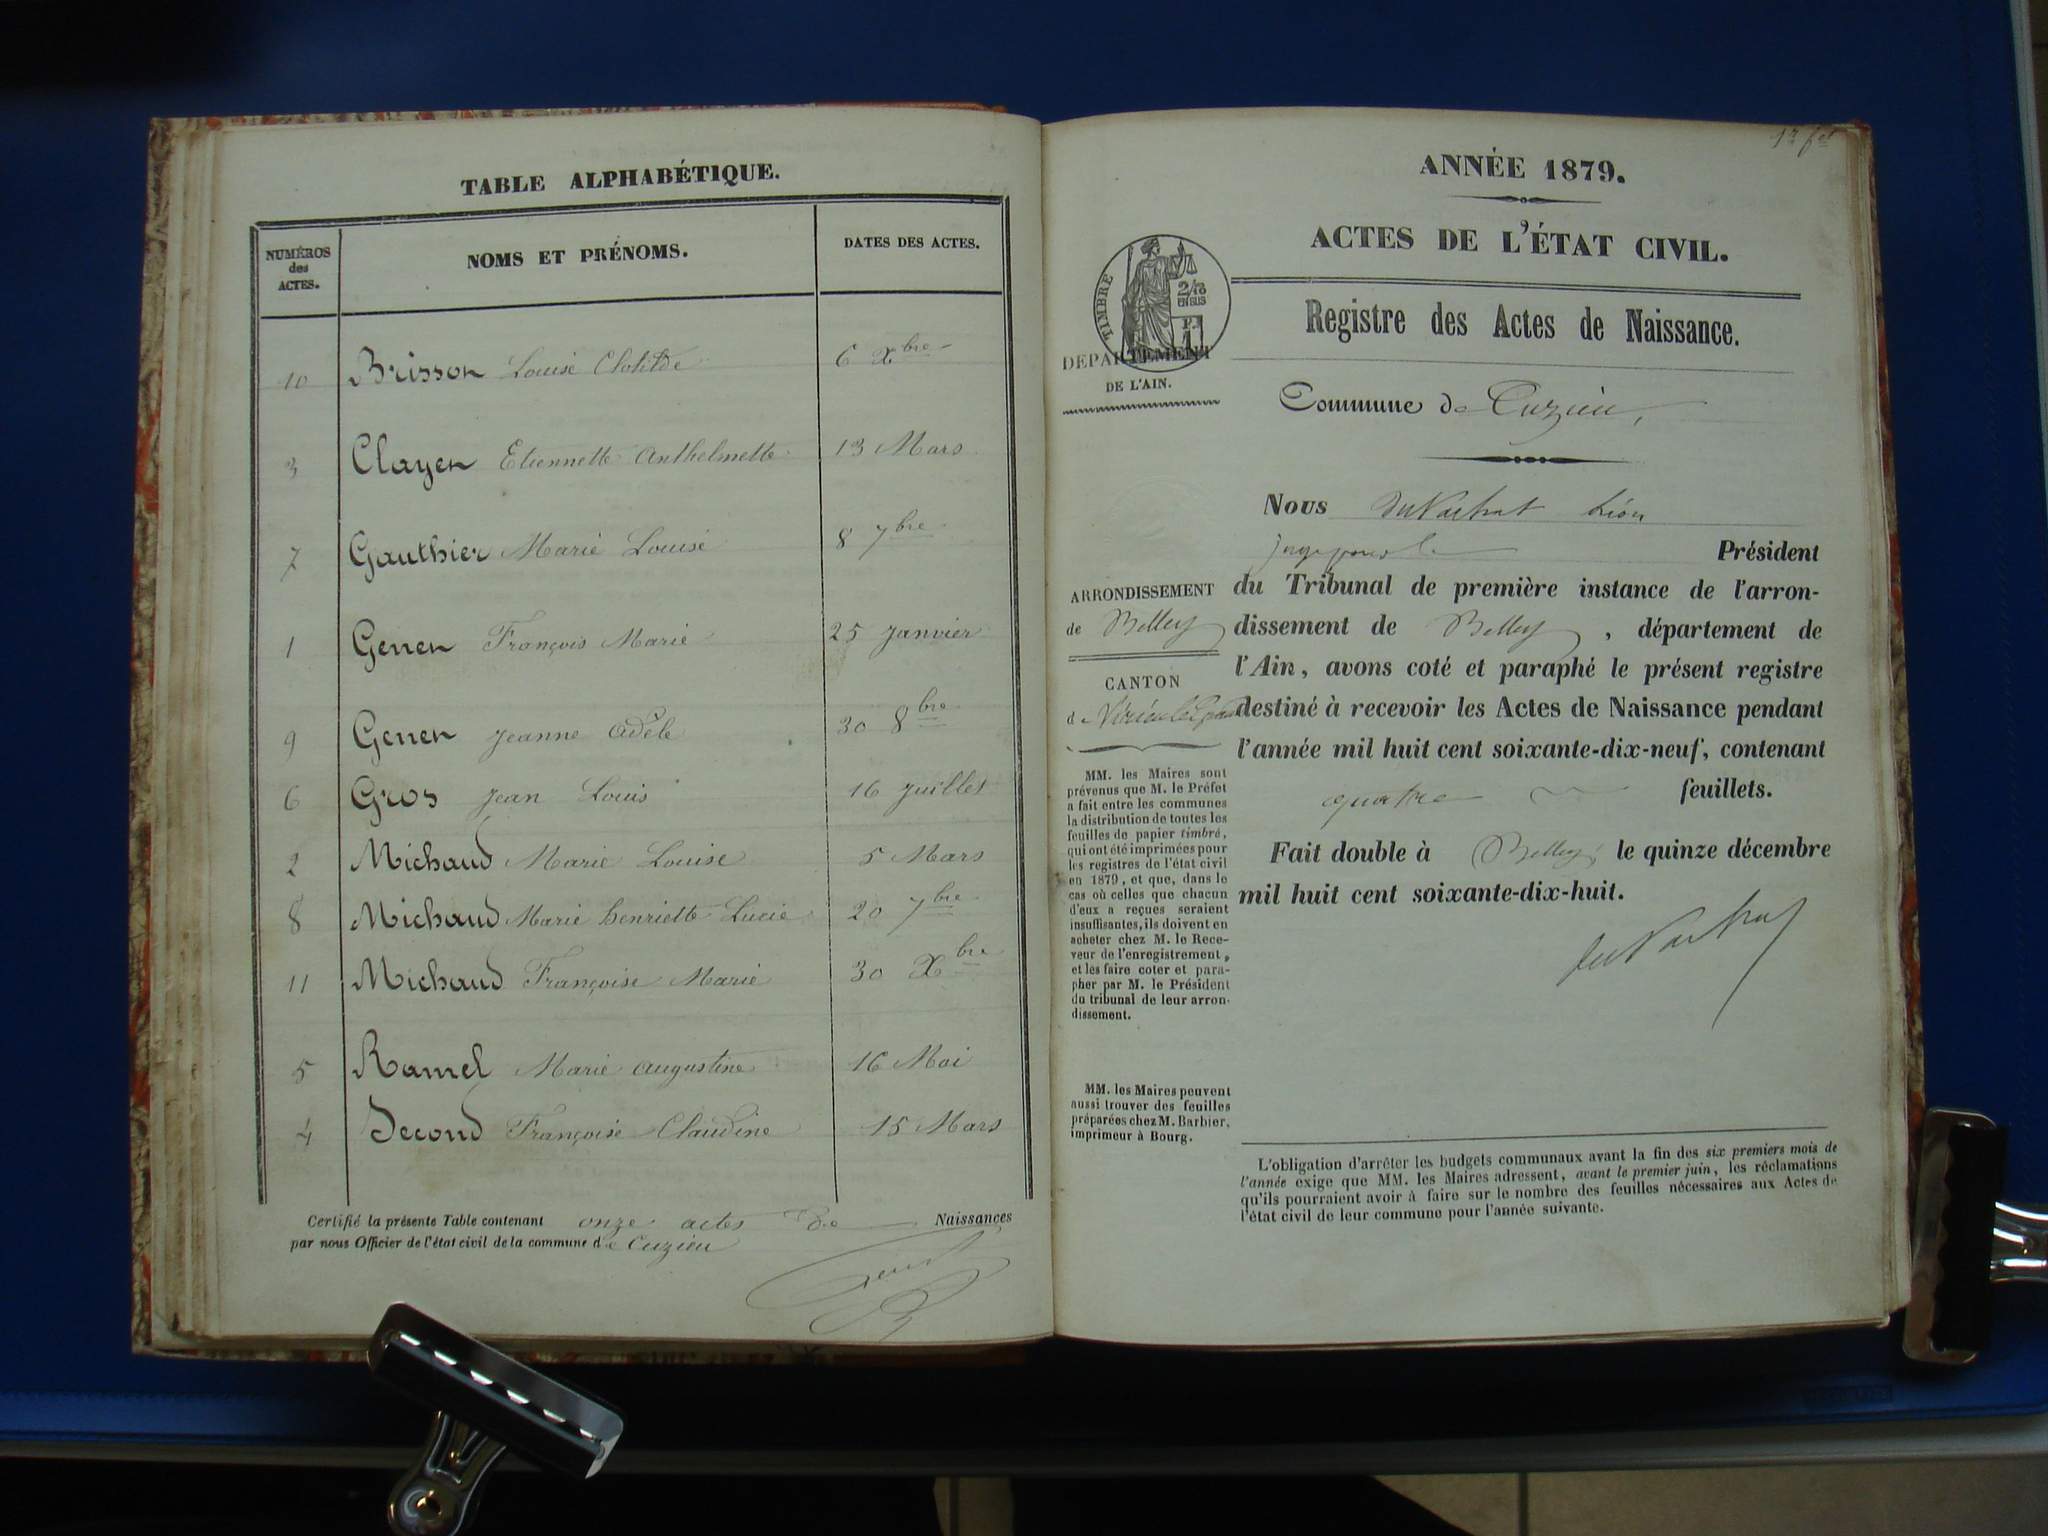 TABLE ALPHABÉTIQUE.
NUMÉROS
des
ACTES.
NOMS ET PRÉNOMS.
DATES DES ACTES.
10 Brisson Louise Clotilde 6 Xbre
3 Clayen Etiennette Anthelmette 13 Mars
7 Gauthier Marie Louise 8 7bre
1 Genen François Marie 25 Janvier
9 Genen Jeanne Adèle 30 8bre
6 Gros Jean Louis 16 Juillet
2 Michaud Marie Louise 5 Mars
8 Michaud Marie henriette Lucie 20 7bre
11 Michaud Françoise Marie 30 Xbre
5 Ramel Marie Augustine 16 Mai
4 Second Françoise Claudine 15 Mars
Certifié la présente Table contenant onze actes de Naissances
par nous Officier de l'état civil de la commune de Cuzieu
ANNÉE 1879.
ACTES DE L'ÉTAT CIVIL.
TIMBRE
2/10
EN SUS
Registre des Actes de Naissance.
DEPARTEMENT
DE L'AIN.
Commune de Cuzieu,
Nous Léon
Président
du Tribunal de première instance de l'arron-
dissement de Belley, département de
l'Ain, avons coté et paraphé le présent registre
destiné à recevoir les Actes de Naissance pendant
l'année mil huit cent soixante-dix-neuf, contenant
quatre feuillets.
Fait double à Belley, le quinze décembre
mil huit cent soixante-dix-huit.
ARRONDISSEMENT
de Belley
CANTON
de Virieu le Grand
MM. les Maires sont
prévenus que M. le Préfet
a fait entre les communes
la distribution de toutes les
feuilles de papier timbré,
qui ont été imprimées pour
les registres de l'état civil
en 1879, et que, dans le
cas où celles que chacun
d'eux a reçues seraient
insuffisantes, ils doivent en
acheter chez M. le Rece-
veur de l'enregistrement,
et les faire coter et para-
pher par M. le Président
du tribunal de leur arron-
dissement.
MM. les Maires peuvent
aussi trouver des feuilles
préparées chez M. Barbier,
imprimeur à Bourg.
L'obligation d'arrêter les budgets communaux avant la fin des six premiers mois de
l'année exige que MM. les Maires adressent, avant le premier juin, les réclamations
qu'ils pourraient avoir à faire sur le nombre des feuilles nécessaires aux Actes de
l'état civil de leur commune pour l'année suivante.